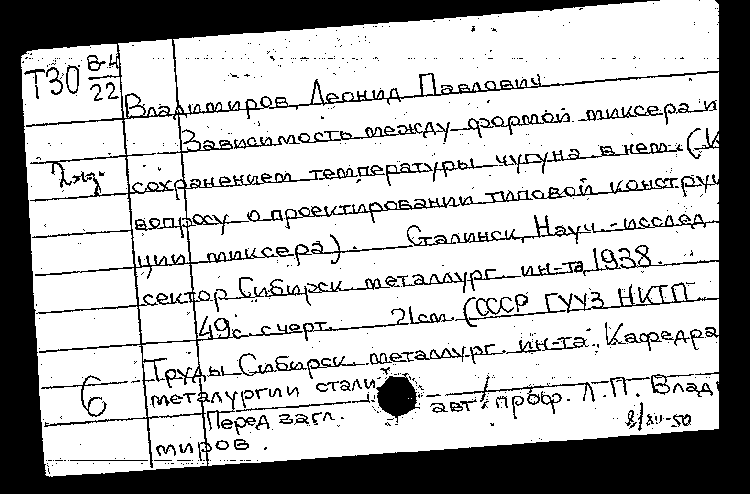 Т30 В-4
22
Владимиров, Леонид Павлович
Зависимость между формой миксера и
2 экз.
сохранением температуры чугуна в нем. (К
вопросу о проектировании типовой конструк
ции миксера). Сталинск, Науч.-исслед.
сектор Сибирск. металлург. ин-та, 1938.
49с. с черт. 21см. (СССР ГУУЗ НКТП
Труды Сибирск. металлург. ин-та. Кафедра
6
металургии стали
Перед загл. авт: проф. Л.П. Влади
миров.
8/XII-50